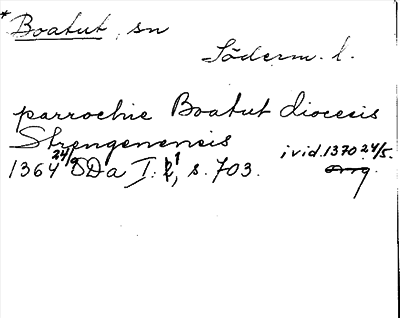 * Boatut, sn
Söderm. l.
parrochie Boatut diocesis
Strengenensis
ivid. 1370 24/5.
1364 24/9 SDa I:1, s. 703.